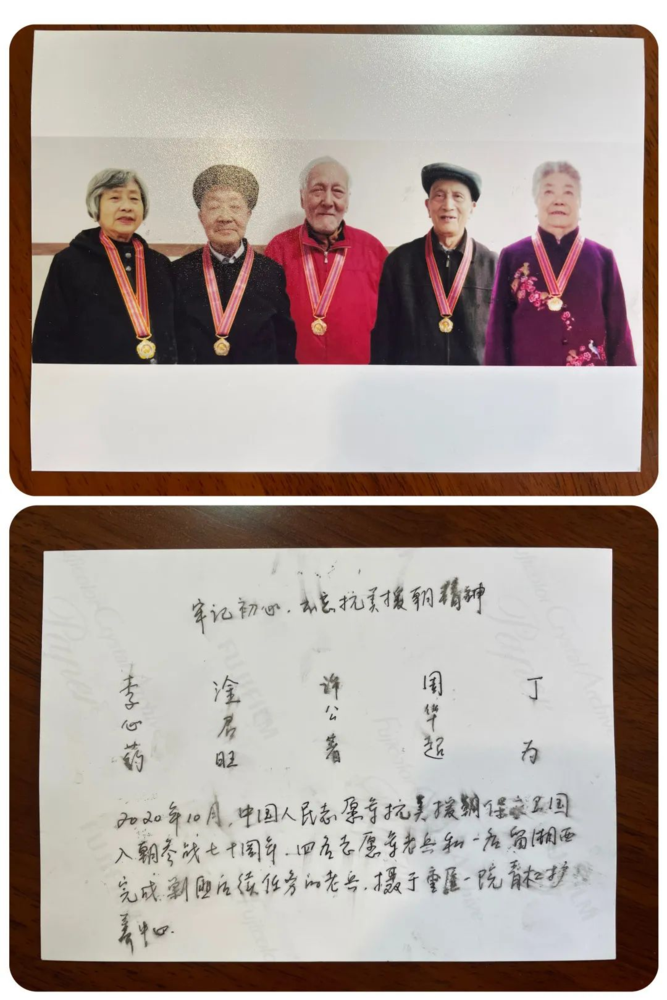 牢记初心、不忘抗美援朝精神
李心药 涂君旺 许公著 周华超 丁为
2020年10月，中国人民志愿军抗美援朝保家卫国
入朝参战七十周年，四名志愿军老兵和一名留湘西
完成剿匪后续任务的老兵，摄于重医一院青杠护
养中心.
FUJIFILM